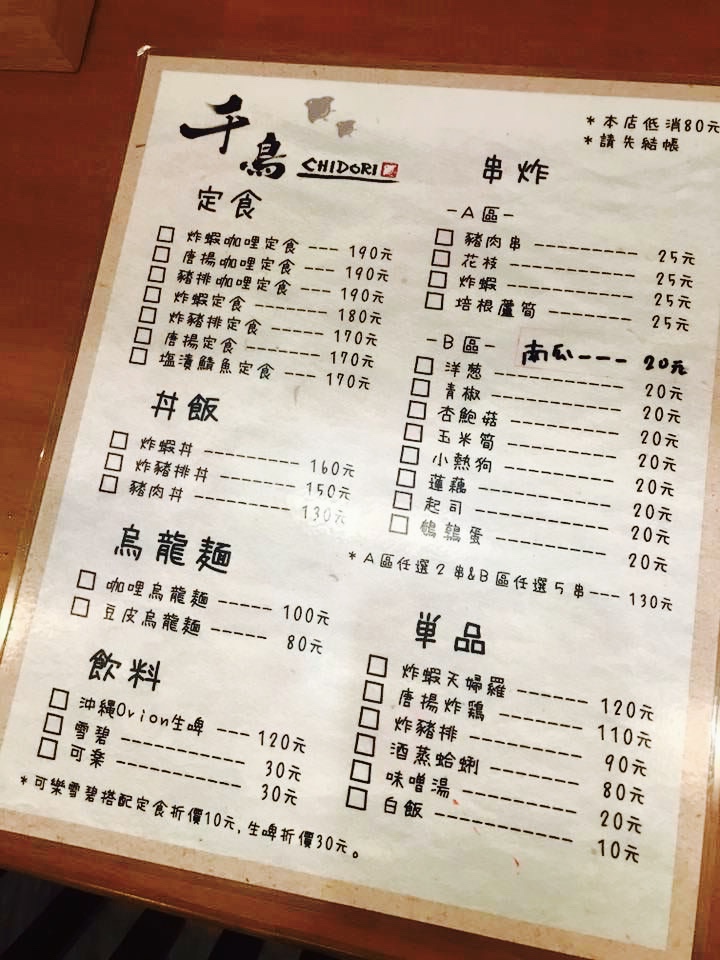 千鳥
CHIDORI
*本店低消80元
*請先結帳
定食
炸蝦咖哩定食 --- 190元
唐揚咖哩定食 --- 190元
豬排咖哩定食 --- 190元
炸蝦定食 ------- 180元
炸豬排定食 ----- 170元
唐揚定食 ------- 170元
塩漬鯖魚定食 --- 170元
丼飯
炸蝦丼 --------- 160元
炸豬排丼 ------- 150元
豬肉丼 --------- 130元
烏龍麵
咖哩烏龍麵 ----- 100元
豆皮烏龍麵 ----- 80元
飲料
沖縄Orion生啤 --- 120元
雪碧 ----------- 30元
可樂 ----------- 30元
*可樂雪碧搭配定食折價10元,生啤折價30元。
串炸
-A區-
豬肉串 --------- 25元
花枝 ----------- 25元
炸蝦 ----------- 25元
培根蘆筍 ------- 25元
-B區- 南瓜--- 20元
洋葱 ----------- 20元
青椒 ----------- 20元
杏鮑菇 --------- 20元
玉米筍 --------- 20元
小熱狗 --------- 20元
蓮藕 ----------- 20元
起司 ----------- 20元
鵪鶉蛋 --------- 20元
*A區任選2串&B區任選5串--- 130元
単品
炸蝦天婦羅 ------ 120元
唐揚炸鶏 -------- 110元
炸豬排 ---------- 90元
酒蒸蛤蜊 -------- 80元
味噌湯 ---------- 20元
白飯 ------------ 10元